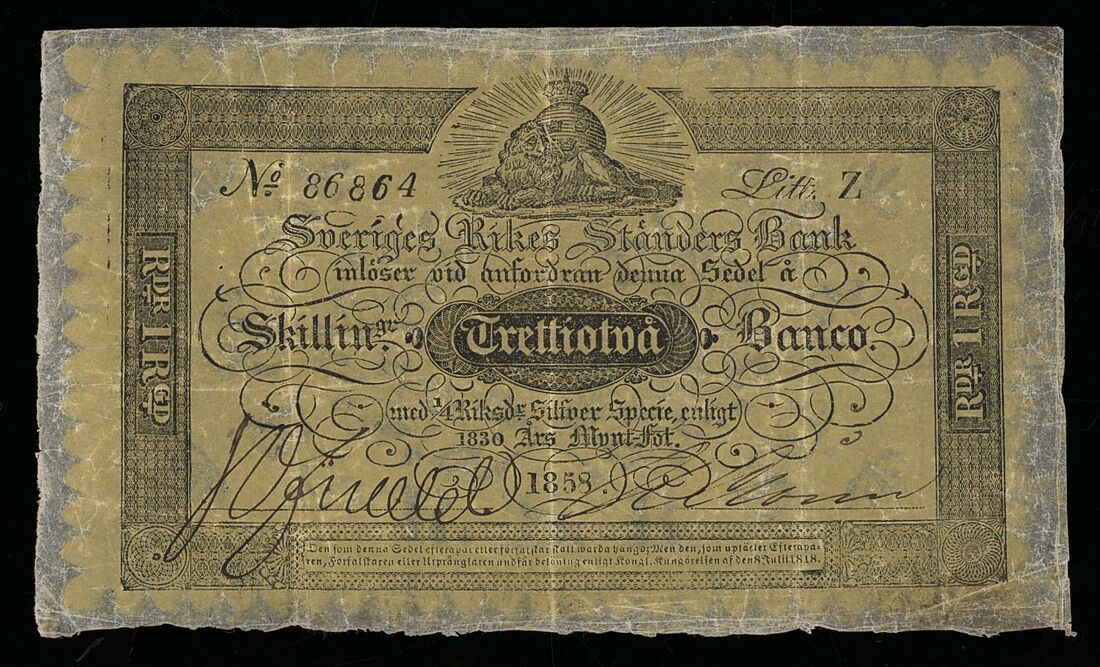 No 86864 Litt. Z
Sveriges Rikes Ständers Bank
inlöser vid anfordran denna Sedel å
Skillingr. Trettiotvå Banco.
med 1/4 Riksdr Silfver Specie, enligt
1830 Års Mynt-Fot.
1858.
RDR 1 RGD
RDR 1 RGD
Den som denna Sedel efterapar eller förfalskar skall warda hängd; Men den, som uptäcker Efterapa-
ren, Förfalskaren eller Utprånglaren undfår belöning enligt Kongl. Kungörelsen af den 8 Julii 1818.